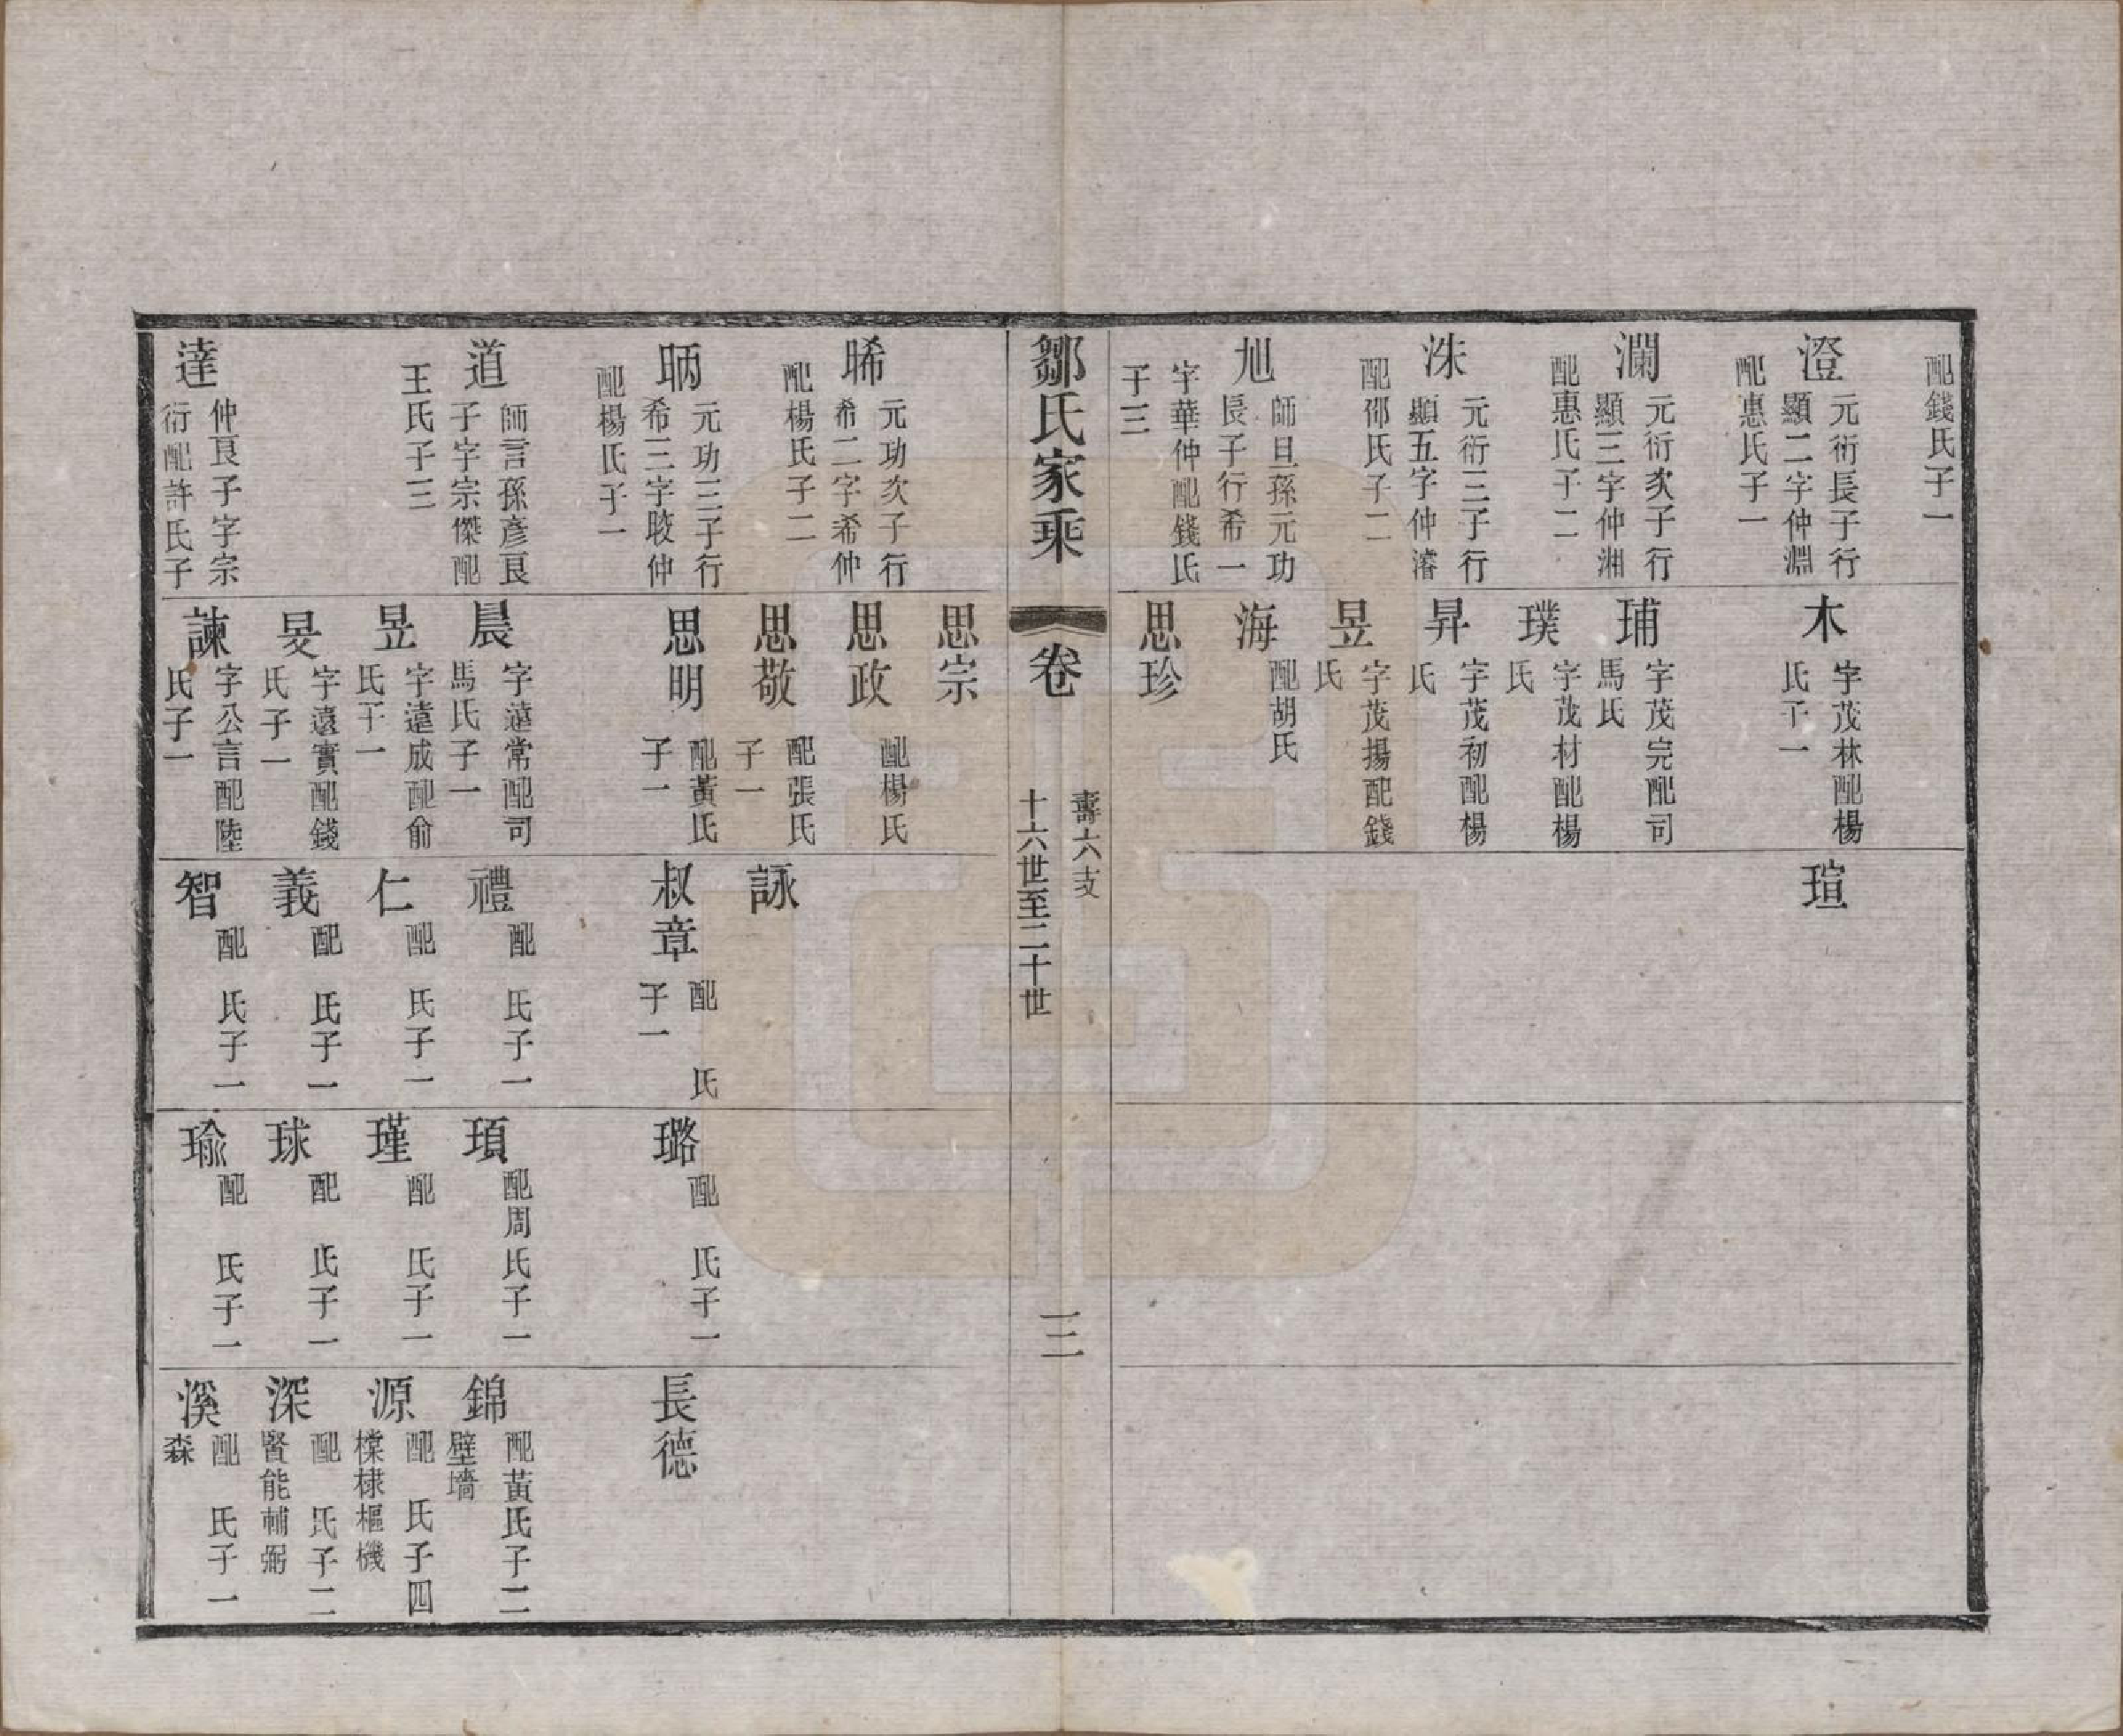 配錢氏子一
澄
元衍長子行
顯二字仲淵
配惠氏子一
瀾
元衍次子行
顯三字仲湘
配惠氏子二
洙
元衍三子行
顯五字仲濬
配邵氏子二
旭
師旦孫元功
長子行希一
字華仲配錢氏
子三
木
字茂林配楊
氏子一
瑚
字茂完配司
馬氏
璞
字茂材配楊
氏
昇
字茂初配楊
氏
昱
字茂揚配錢
氏
海
配胡氏
思珍
瑄
鄒氏家乘
卷
壽六支
十六世至二十世
三
晞
元功次子行
希二字希仲
配楊氏子二
昞
元功三子行
希三字晈仲
配楊氏子一
道
師言孫彥良
子字宗傑配
王氏子三
達
仲良子字宗
衍配許氏子
思宗
思政
配楊氏
思敬
配張氏
子一
思明
配黃氏
子一
晨
字遠常配司
馬氏子一
昱
字遠成配俞
氏子一
旻
字遠實配錢
氏子一
諫
字公言配陸
氏子一
詠
叔章
配 氏
子一
禮
配 氏子一
仁
配 氏子一
義
配 氏子一
智
配 氏子一
璐
配 氏子一
頊
配周氏子一
瑾
配 氏子一
球
配 氏子一
瑜
配 氏子一
長德
錦
配黃氏子二
壁墻
源
配 氏子四
棠棣樞機
深
配 氏子二
賢能輔弼
溪
配 氏子一
森